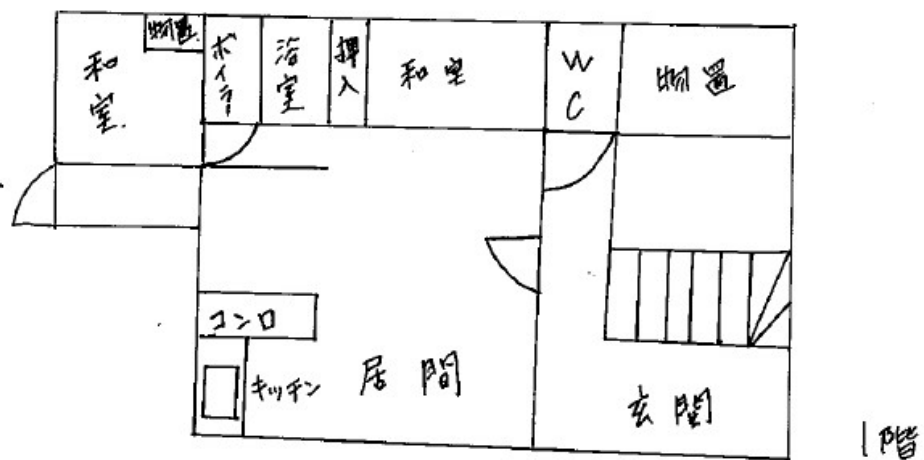 和室
物置
ボイラー
浴室
押入
和室
WC
物置
コンロ
キッチン
居間
玄関
1階